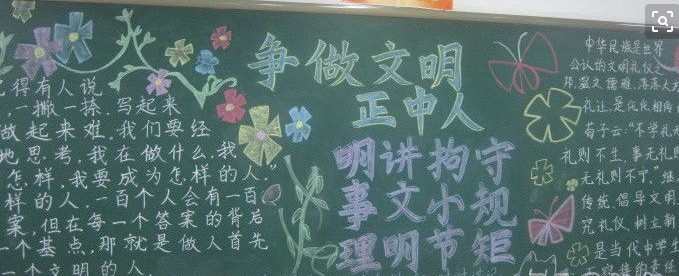 得有人说
，一撇一捺，写起来
做起来难，我们要经
地思考，我在做什么，我
怎样，我要成为怎样的人。
样的人。一百个人会有一百
案，但在每一个答案的背后
一个基点，那就是做人首先
一个文明的人，
争做文明
正中人
明事理
讲文明
拘小节
守规矩
中华民族是世界
公认的文明礼仪之
邦，温文儒雅，落落大
礼让，是
荀子云：“不学礼无
礼则不生，事无礼则
无礼则不宁。”继
传统，倡导文明
究礼仪，树立新
是当代中学生
的责任